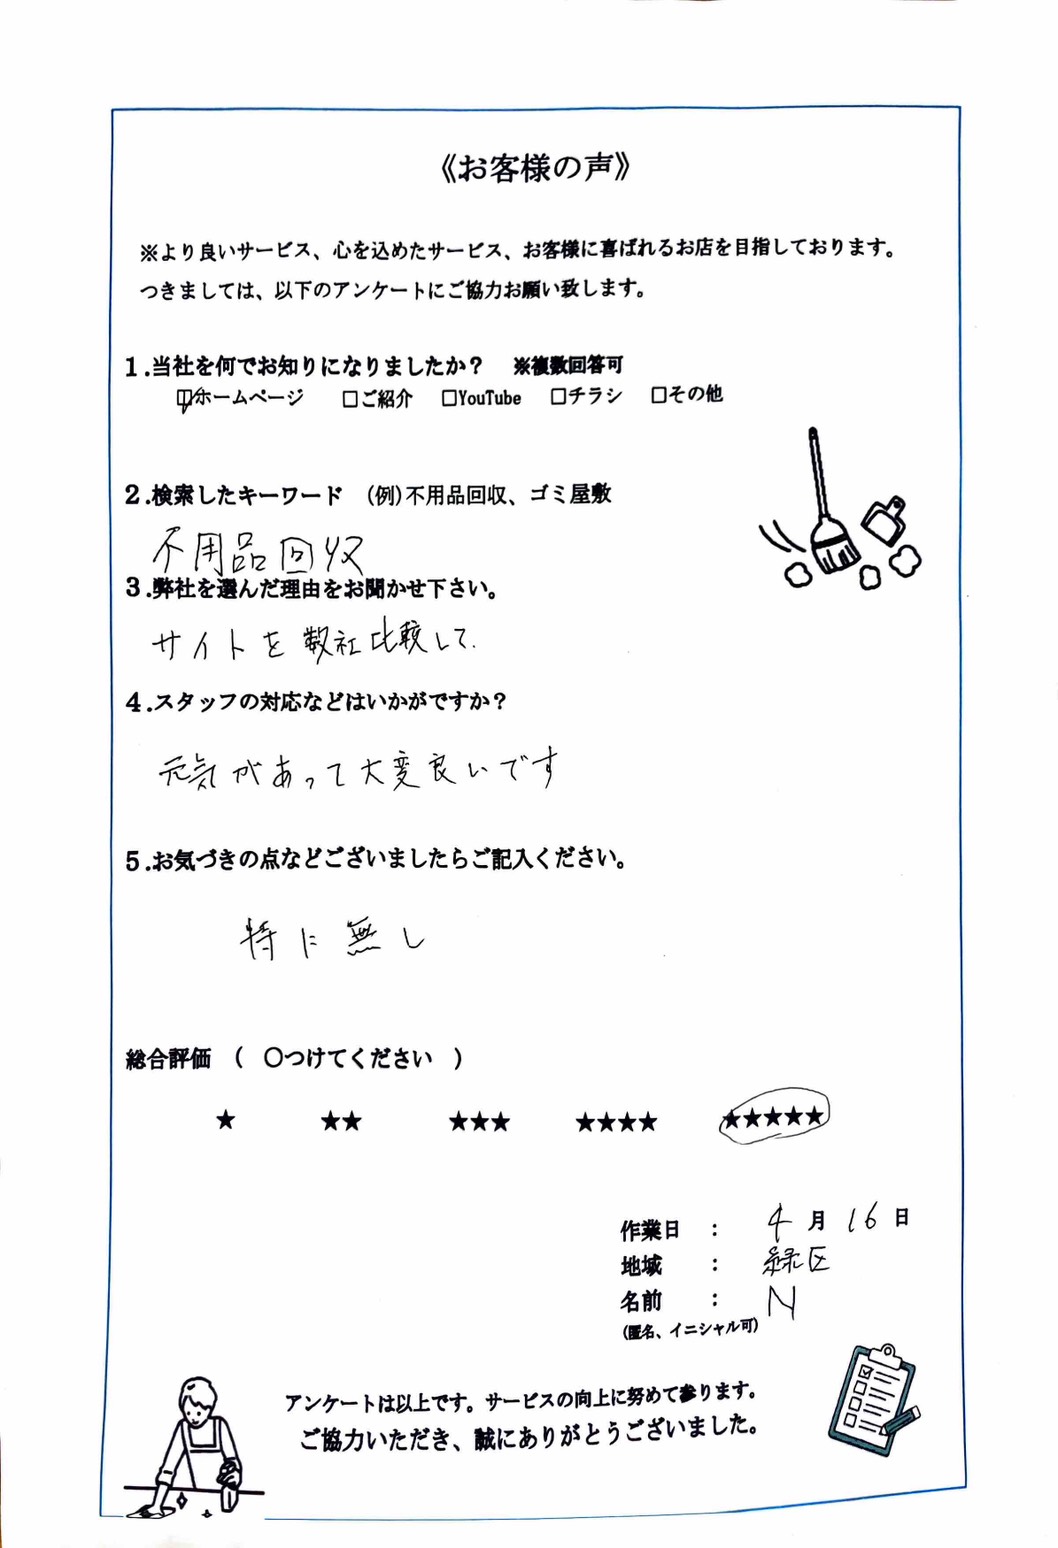 《お客様の声》
※より良いサービス、心を込めたサービス、お客様に喜ばれるお店を目指しております。
つきましては、以下のアンケートにご協力お願い致します。
1.当社を何でお知りになりましたか？ ※複数回答可
☑ホームページ □ご紹介 □YouTube □チラシ □その他
2.検索したキーワード (例)不用品回収、ゴミ屋敷
不用品回収
3.弊社を選んだ理由をお聞かせ下さい。
サイトを数社比較して.
4.スタッフの対応などはいかがですか？
元気があって大変良いです
5.お気づきの点などございましたらご記入ください。
特に無し
総合評価 ( 〇つけてください )
★ ★★ ★★★ ★★★★ ★★★★★
作業日 : 4月16日
地域 : 緑区
名前 : N
(匿名、イニシャル可)
アンケートは以上です。サービスの向上に努めて参ります。
ご協力いただき、誠にありがとうございました。